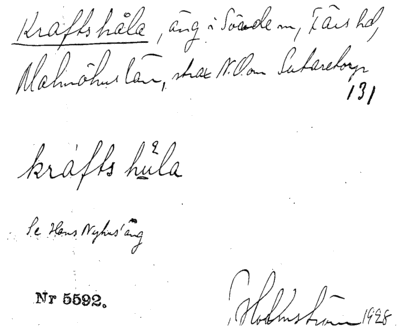 Kraftshåla, äng i Sövde sn, Färs hd,
Malmöhus län, strax N.O. om Sutaretorp
131
krafts hu̲la
Se Hans Nyhus' äng
Nr 5592.
Holmström 1928